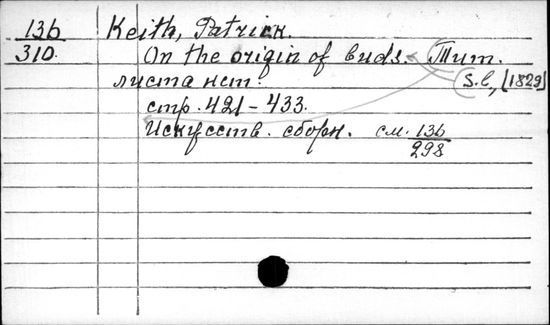 136 Keith, Patrick.
310. On the origin of buds. Тит.
листа нет. S.l., [1829]
стр. 421-433.
Искусств. сборн. см. 136
298